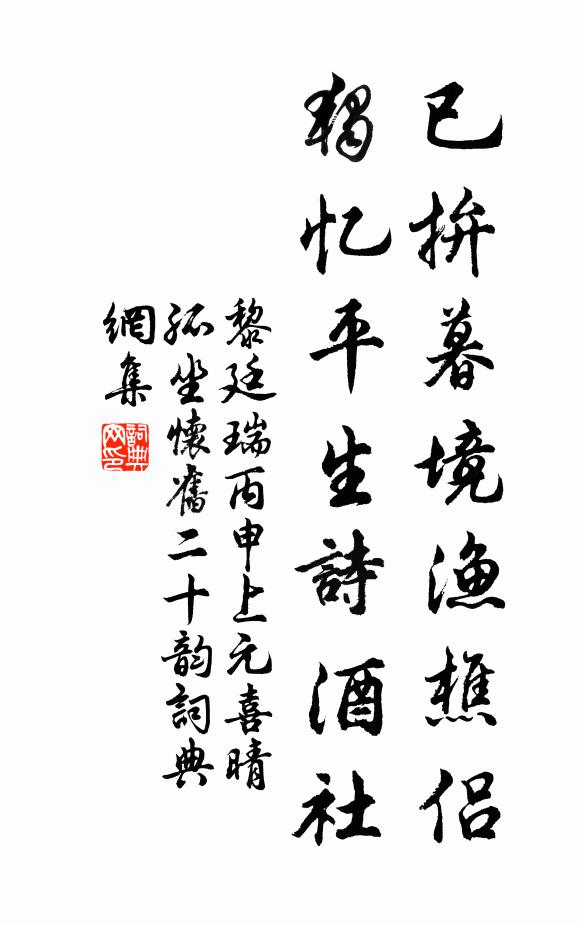 已拚暮境漁樵侣
獨忆平生詩酒社
黎廷瑞丙申上元喜晴
孤坐懷舊二十韵詞典
網集
詞典網印